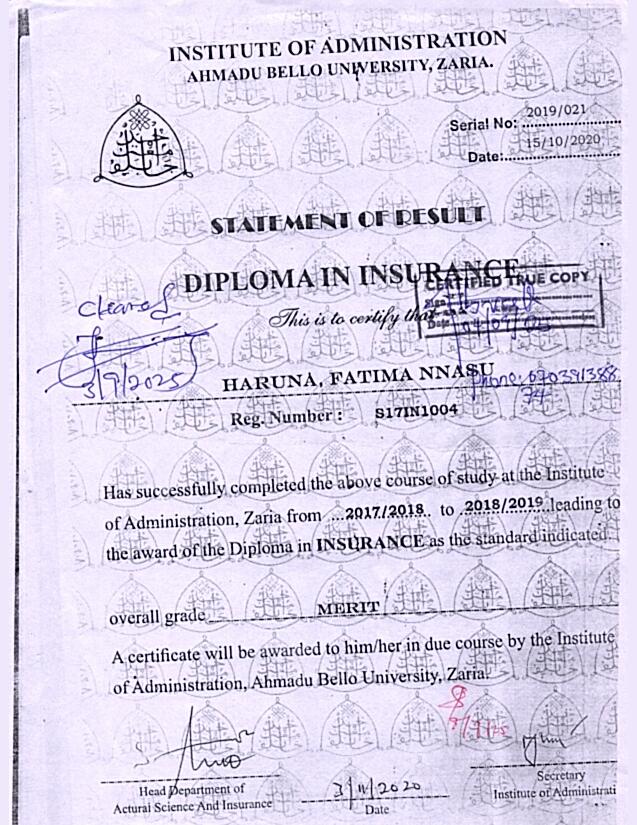 INSTITUTE OF ADMINISTRATION
AHMADU BELLO UNIVERSITY, ZARIA.
Serial No: 2019/021
Date: 15/10/2020
STATEMENT OF RESULT
DIPLOMA IN INSURANCE
CERTIFIED TRUE COPY
Cleared
This is to certify that
Date
3/9/2025
HARUNA, FATIMA NNASU
Reg. Number : S17IN1004
Has successfully completed the above course of study at the Institute
of Administration, Zaria from ...2017/2018.. to ..2018/2019..leading to
the award of the Diploma in INSURANCE as the standard indicated.
overall grade MERIT
A certificate will be awarded to him/her in due course by the Institute
of Administration, Ahmadu Bello University, Zaria.
Head Department of
Actural Science And Insurance
3/11/2020
Date
Secretary
Institute of Administrati